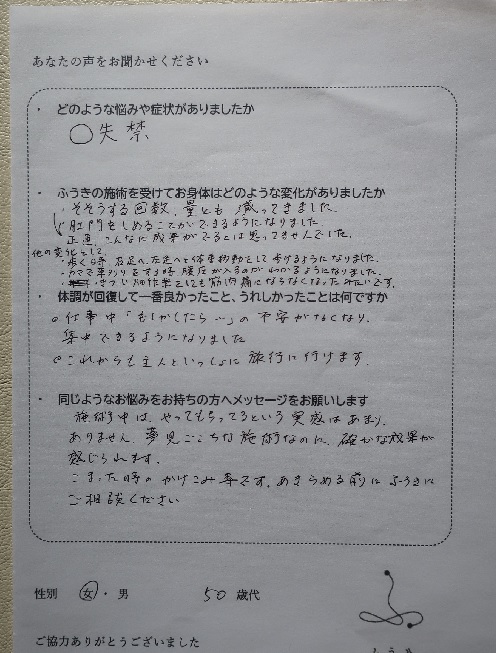 あなたの声をお聞かせください
・ どのような悩みや症状がありましたか
○失禁
・ ふうきの施術を受けてお身体はどのような変化がありましたか
・そそうする回数、量とも 減ってきました。
肛門をしめることができるようになりました。
正直 こんなに成果がでるとは思ってませんでした。
他の変化として
・歩く時 右足へ、左足へと体重移動として歩けるようになりました。
・カマで草かりをする時 腹圧が入るのがわかるようになりました。
・きつい畑作業をしても筋肉痛にならなくなったみたいです。
・ 体調が回復して一番良かったこと、うれしかったことは何ですか
○仕事中「もしかしたら…」の不安がなくなり、
集中できるようになりました
○これからも主人といっしょに旅行に行けます。
・ 同じようなお悩みをお持ちの方へメッセージをお願いします
施術中は、やってもらってるという実感はあまり
ありません。夢見ごこちな施術なのに、確かな効果が
感じられます。
こまった時のかけこみ寺です。あきらめる前にふうきに
ご相談ください
性別 女・男 50歳代
ご協力ありがとうございました
ふうき